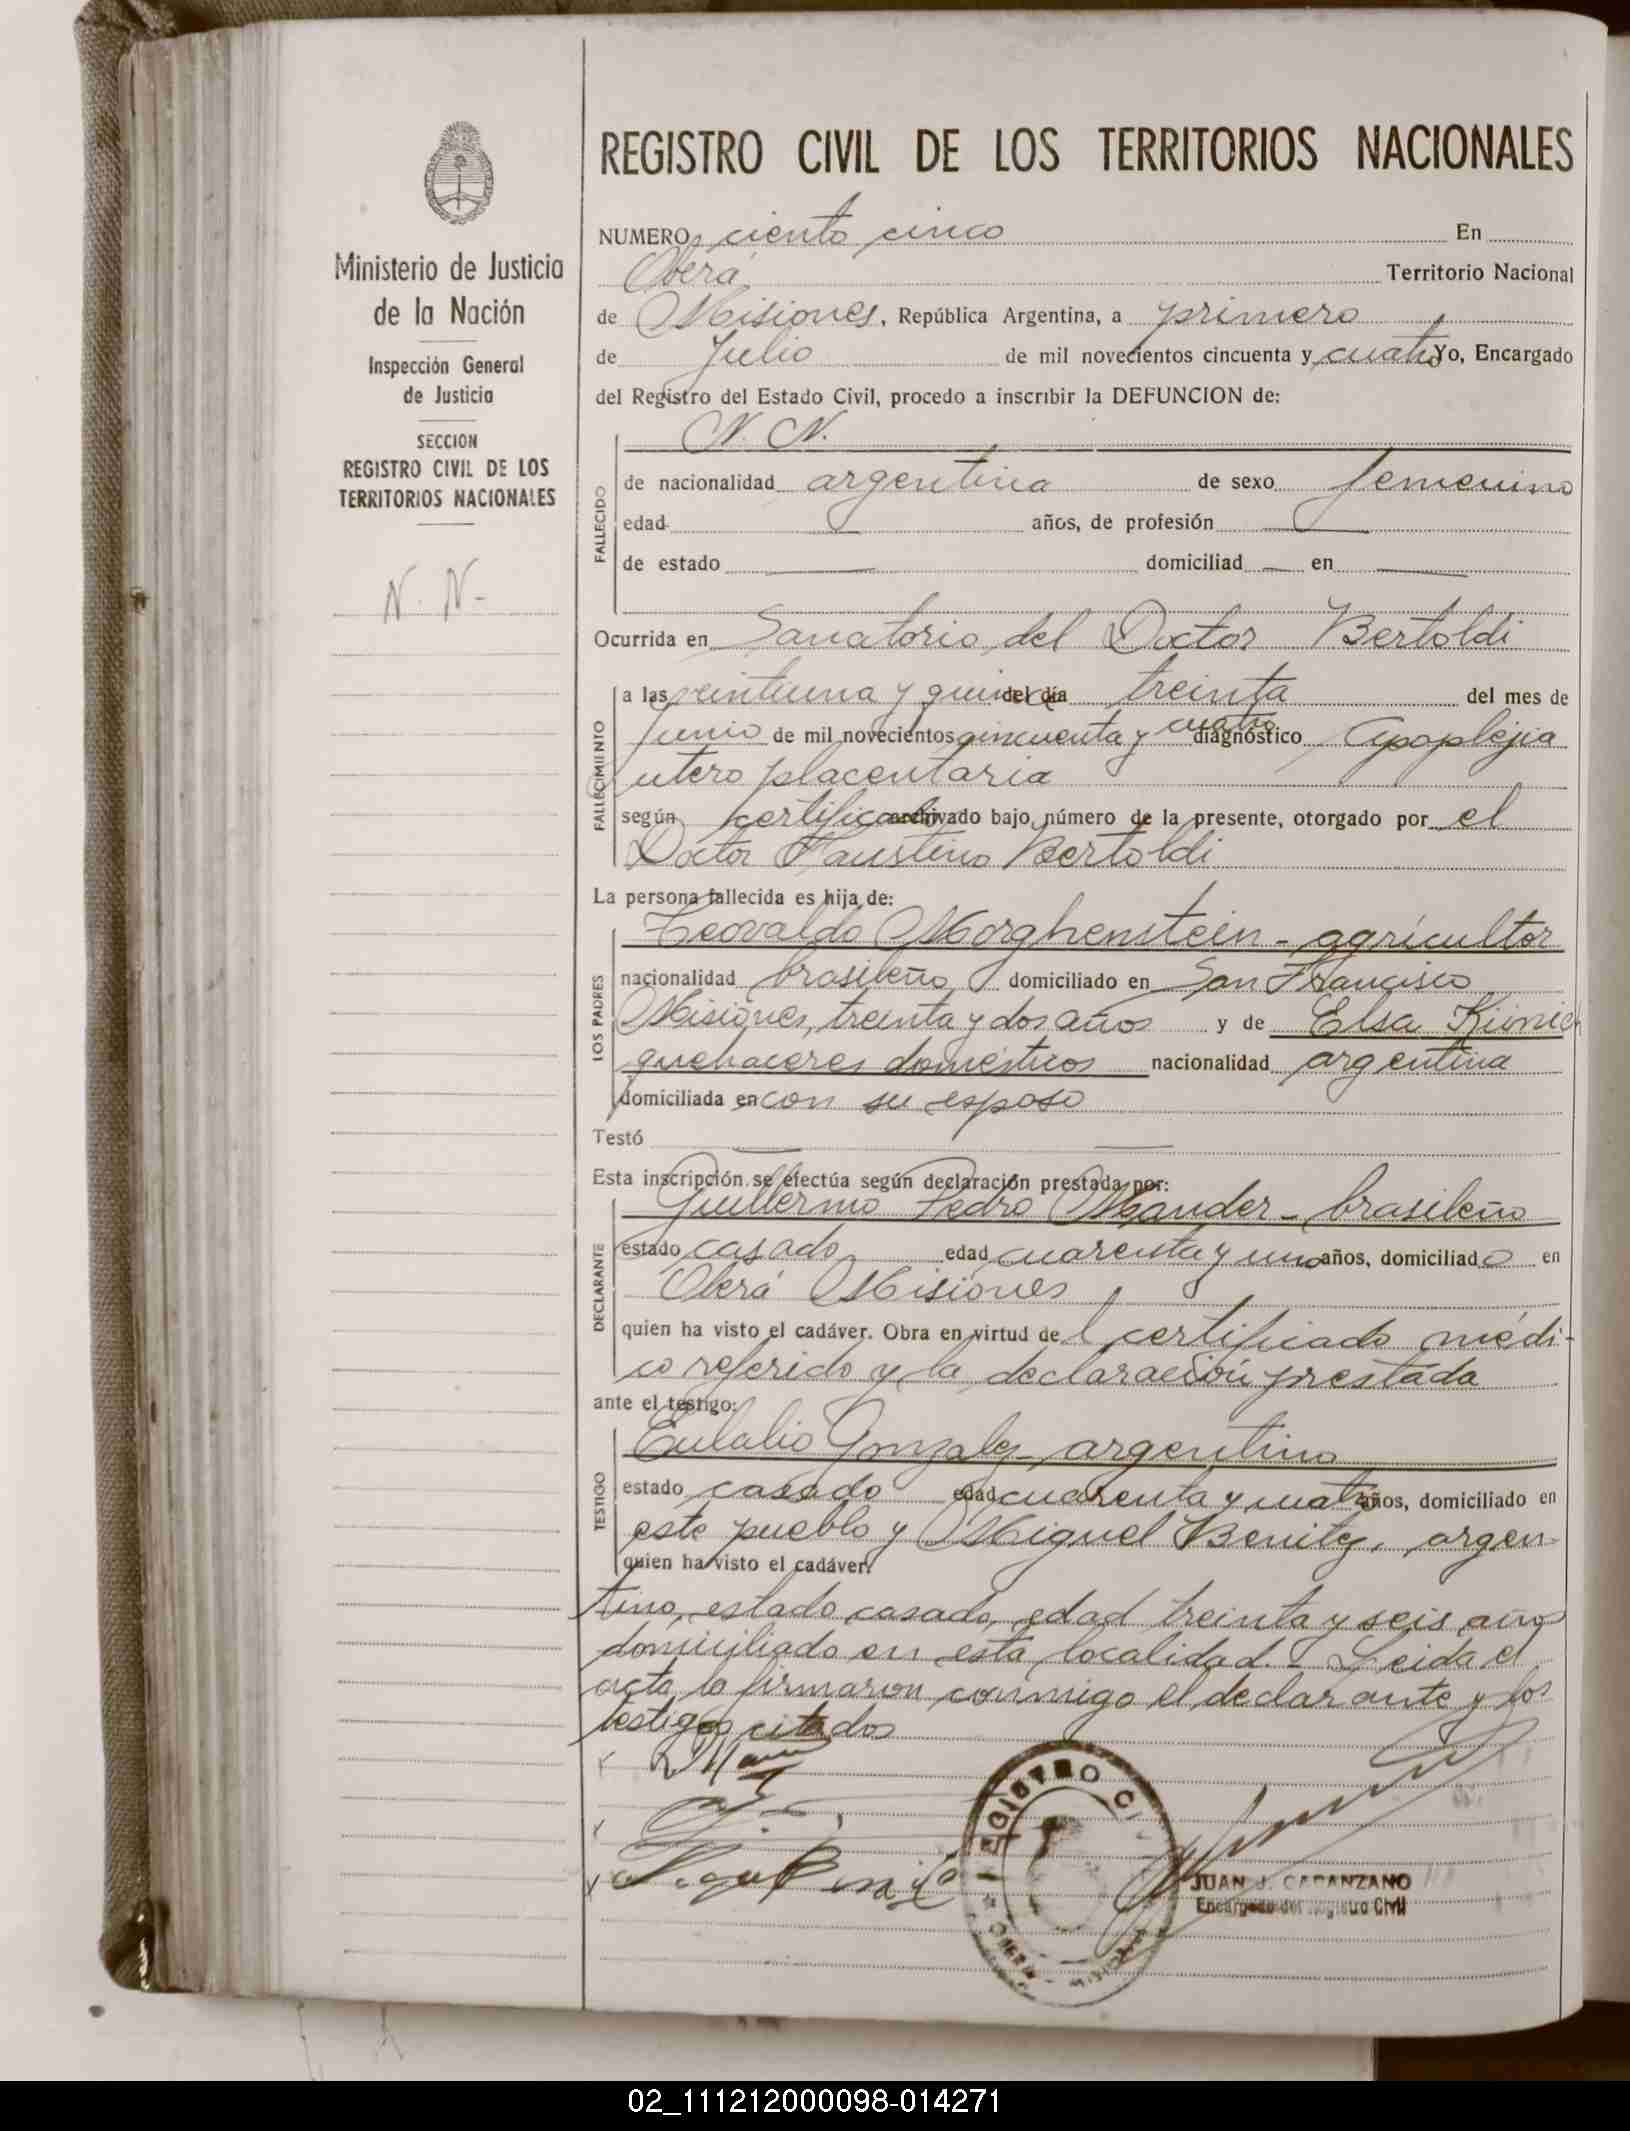 Ministerio de Justicia
de la Nación
Inspección General
de Justicia
SECCION
REGISTRO CIVIL DE LOS
TERRITORIOS NACIONALES
N. N-
REGISTRO CIVIL DE LOS TERRITORIOS NACIONALES
NUMERO ciento cinco En
Oberá Territorio Nacional
de Misiones, República Argentina, a primero
de Julio de mil novecientos cincuenta y cuatro Yo, Encargado
del Registro del Estado Civil, procedo a inscribir la DEFUNCION de:
FALLECIDO
N. N.
de nacionalidad argentina de sexo femenino
edad — años, de profesión —
de estado — domiciliad — en —
Ocurrida en Sanatorio del Doctor Bertoldi
FALLECIMIENTO
a las veintiuna y quince del día treinta del mes de
Junio de mil novecientos cincuenta y cuatro diagnóstico Apoplejia
utero placentaria
según certificado archivado bajo número de la presente, otorgado por el
Doctor Faustino Bertoldi
La persona fallecida es hija de:
LOS PADRES
Teovaldo Morghenstein - agricultor
nacionalidad brasileño domiciliado en San Francisco
Misiones, treinta y dos años y de Elsa
quehaceres domésticos nacionalidad argentina
domiciliada en con su esposo
Testó —
Esta inscripción se efectúa según declaración prestada por:
DECLARANTE
Guillermo Pedro - brasileño
estado casado edad cuarenta y uno años, domiciliado en
Oberá Misiones
quien ha visto el cadáver. Obra en virtud del certificado médi-
co referido y la declaración prestada
ante el testigo:
TESTIGO
Eulalio Gonzalez - argentino
estado casado edad cuarenta y cuatro años, domiciliado en
este pueblo y Miguel Benitez, argen-
quien ha visto el cadáver.
tino, estado casado, edad treinta y seis años
domiciliado en esta localidad. - Leida el
acta, la firmaron conmigo el declarante y los
testigos citados
REGISTRO CI
JUAN J. CAPANZANO
Encargado del Registro Civil
02_111212000098-014271